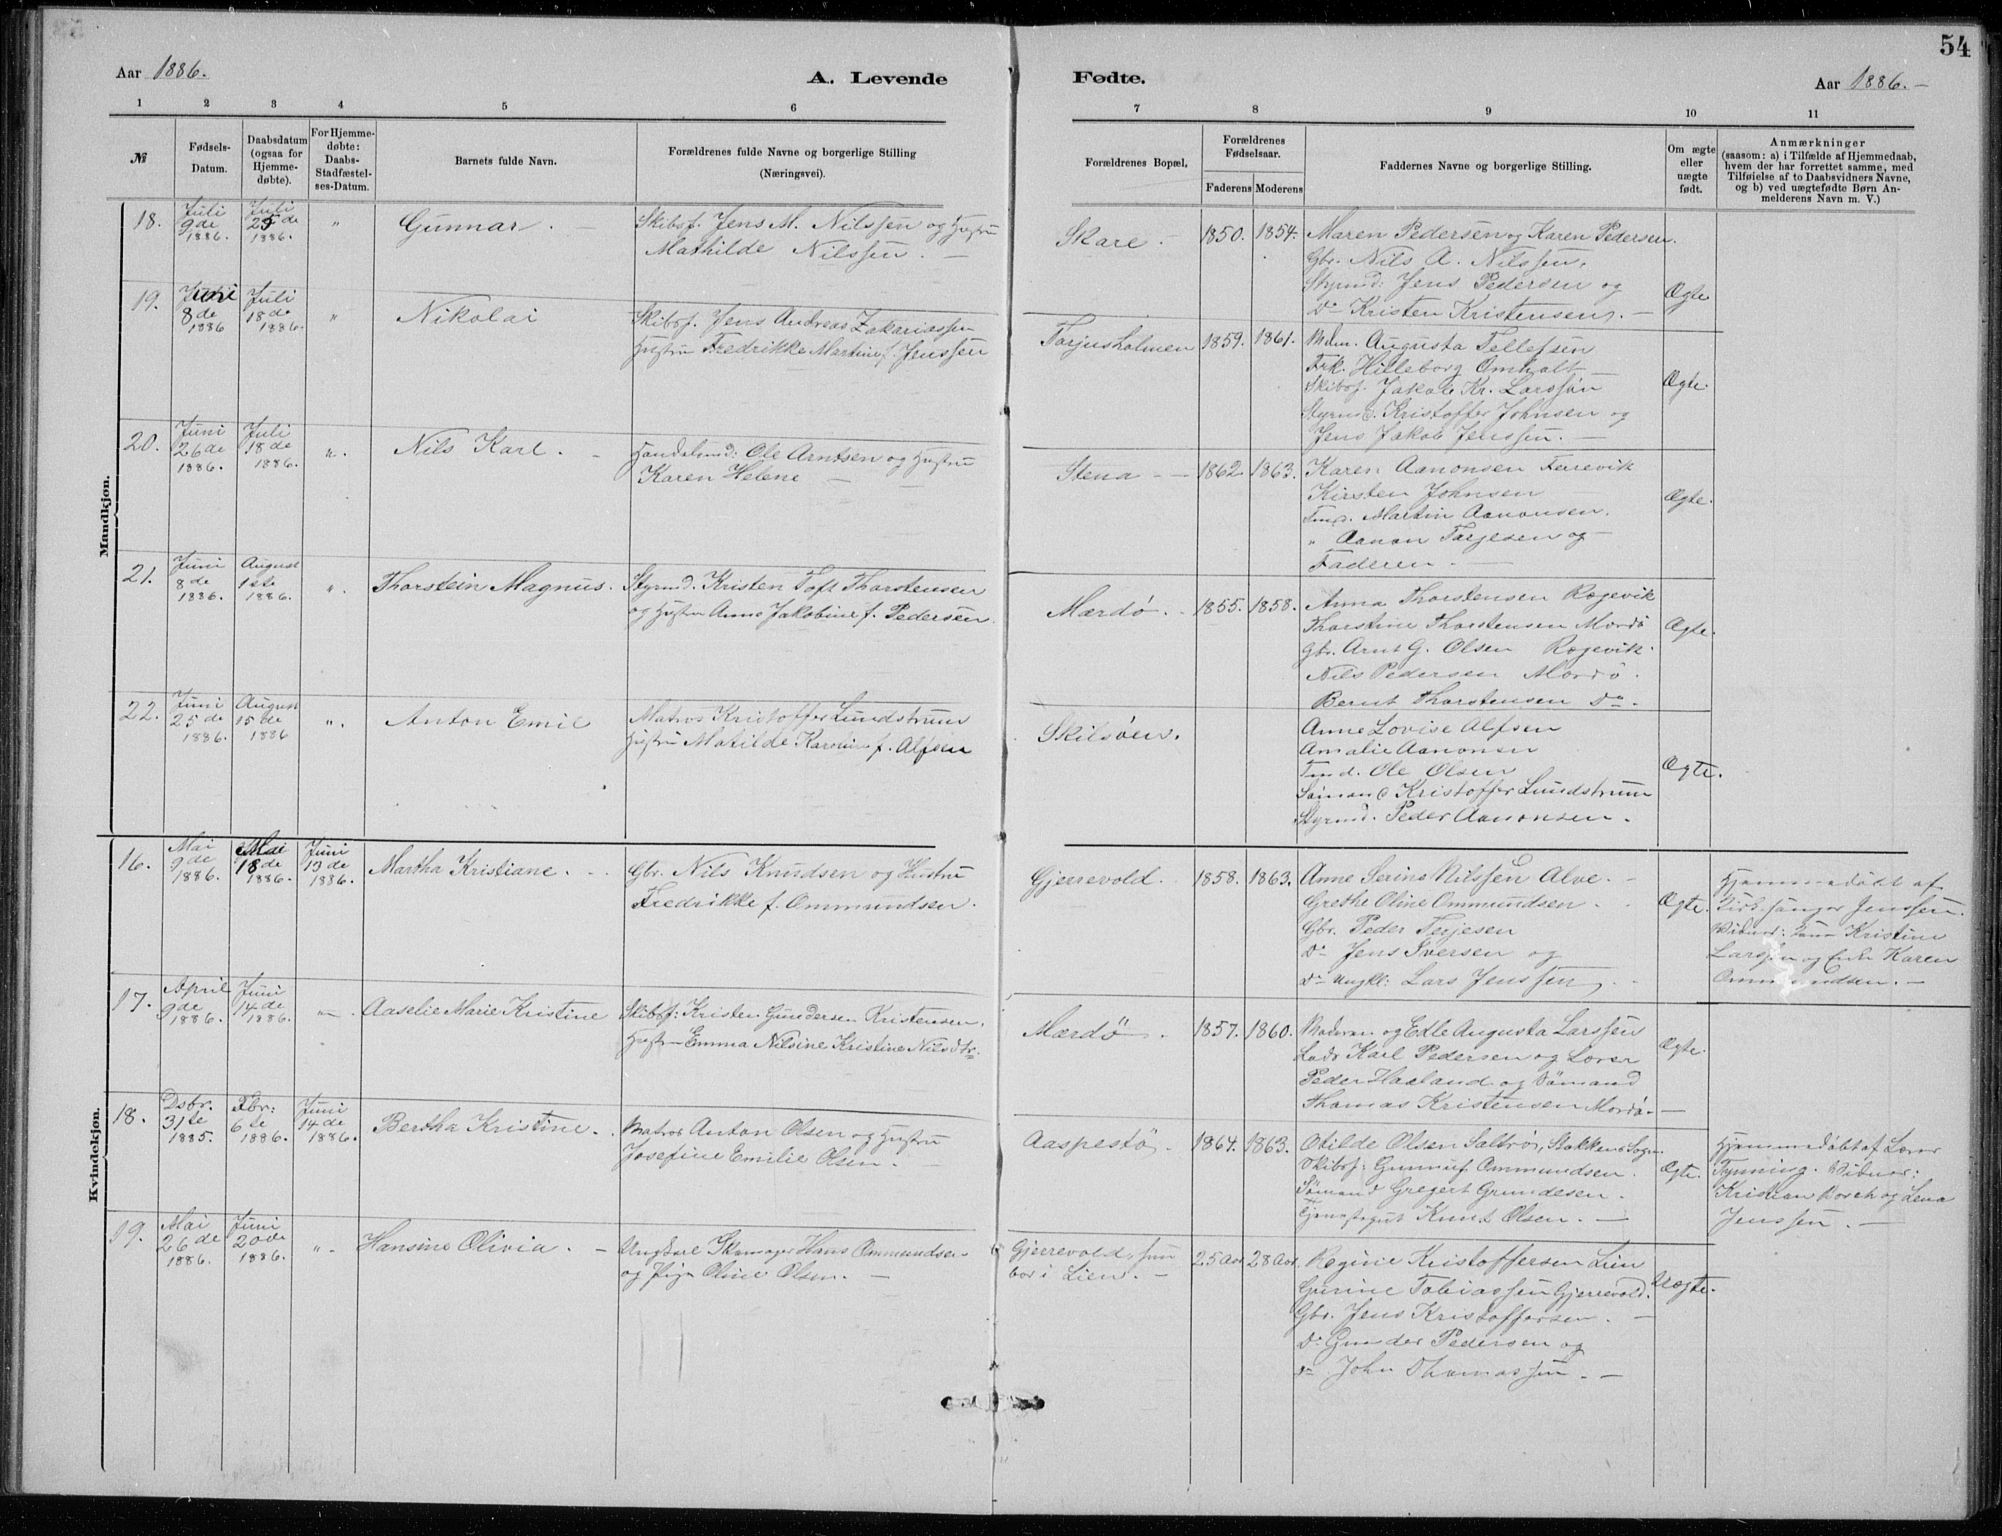 54
Aar 1886.
A. Levende
Fødte.
Aar 1886. —
1 2 3 4 5 6 7 8 9 10 11
№
Fødsels-
Datum.
Daabsdatum
(ogsaa for
Hjemme-
døbte).
For Hjemme-
døbte:
Daabs-
Stadfæstel-
ses-Datum.
Barnets fulde Navn.
Forældrenes fulde Navne og borgerlige Stilling
(Næringsvei).
Forældrenes Bopæl.
Forældrenes
Fødselsaar.
Faderens Moderens
Faddernes Navne og borgerlige Stilling.
Om ægte
eller
uægte
født.
Anmærkninger
(saasom: a) i Tilfælde af Hjemmedaab,
hvem der har forrettet samme, med
Tilføielse af to Daabsvidners Navne,
og b) ved uægtefødte Børn An-
melderens Navn m. V.)
Mandkjøn.
18.
Juli
9de
1886.
Juli
25de
1886.
"
Gunnar. —
Skibsf. Jens M. Nilssen og Hustru
Mathilde Nilssen. —
Skare —
1850. 1854.
Maren Pedersen og Karen Pedersen.
Gbr. Nils A. Nilssen,
Styrmd: Jens Pedersen og
Do Kristen Kristensen. —
Ægte
19.
Juni
8de
1886
Juli
18de
1886.
"
Nikolai
Skibsf. Jens Andreas Zakariassen
Hustru Fredrikke Martine f. Jenssen
Torjusholmen
1859. 1861.
Mdm. Augusta Tellefsen
Frk. Hilleborg Omholt —
Skibsf. Jakob Kr. Larssen
Styrmd. Kristoffer Johnsen og
Jens Jakob Jenssen. —
Ægte.
20.
Juni
26de
1886.
Juli
18de
1886.
".
Nils Karl. —
Handelsmd: Ole Arntsen og Hustru
Karen Helene —
Stena — —
1862. 1863.
Karen Aanonsen Ferrevik
Kirsten Johnsen —
Tmd. Martin Aanonsen.
" Aanon Terjesen og —
Faderen. —
Ægte.
21.
Juni
8de
1886.
August
1ste
1886.
".
Thorstein Magnus.
Styrmd. Kristen Toft Thorstensen
og Hustru Anne Jakobine f. Pedersen.
Mærdø. —
1855. 1858.
Anna Thorstensen Rægevik
Thorstine Thorstensen Mærdø
Gbr. Arnt G. Olsen Rægevik.
Nils Pedersen Mærdø.
Bernt Thorstensen Do.
Ægte.
22.
Juni
25de
1886.
August
15de
1886
".
Anton Emil
Matros Kristoffer Lundstrum
Hustru Matilde Karoline f. Alfsen
Skilsøen.
Anne Lovise Alfsen
Amalie Aanonsen
Tmd. Ole Olsen
Sømand Kristoffer Lundstrum
Styrmd. Peder Aanonsen.
Ægte.
Kvindekjøn.
16.
Mai
9de
1886.
Mai
18de
1886.
Juni
13de
1886.
Martha Kristiane. —
Gbr. Nils Knudsen og Hustru
Fredrikke f. Ommundsen.
Gjerrevold.
1858. 1863.
Anne Serine Nilssen Alve. —
Grethe Oline Ommundsen.
Gbr. Peder Terjesen
Do Jens Iversen og
Do Ungkl: Lars Jenssen.
Ægte.
Hjemmedøbt af
Kirkesanger Jenssen.
Vidner: Kristine
Larssen og Enke Karen
Ommundsen. —
17.
April
9de
1886.
Juni
14de
1886.
"
Aaselie Marie Kristine
Skibsf: Kristen Gundersen Kristensen.
Hustru Emma Nilsine Kristine Nilsdtr:
Mærdø.
1857. 1860.
Moderen og Edle Augusta Larssen
Lods Karl Pedersen og Lærer
Peder Haaland og Sømand
Thomas Kristensen Mærdø. —
Ægte.
18.
Dsbr.
31te
1885.
Fbr:
6te
1886.
Juni
14de
1886.
Bertha Kristine. .
Matros Anton Olsen og Hustru
Josefine Emilie Olsen. —
Aaspestø.
1864. 1863.
Otilde Olsen Saltrø, Stokken Sogn
Skibsf: Gunnuf Ommundsen.
Sømand Gregert Grundesen.
Tjenestegut Knut Olsen. —
Ægte.
Hjemmedøbt af Lærer
Tynning. Vidner:
Kristian Bosch og Lena
Jenssen. —
19.
Mai
26de
1886.
Juni
20de
1886.
".
Hansine Olivia. —
Ungkarl Skomager Hans Ommundsen
og Pige Oline Olsen. —
Gjerrevold, hun
bor i Lien. —
25 Aar. 28 Aar.
Regine Kristoffersen Lien
Gurine Tobiassen Gjerrevold.
Gbr. Jens Kristoffersen. —
Do Gunder Pedersen og
Do John Thomassen. —
Uægte.